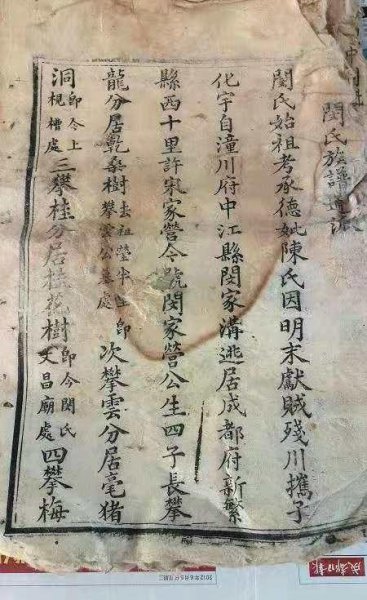 閔氏族譜
閔氏始祖考承德妣陳氏因明末獻賊殘川攜子
化宇自潼川府中江縣閔家溝逃居成都府新繁
縣西十里許宋家營今號閔家營公生四子長攀
龍分居乾桑樹去祖塋半里即攀雲公墓處次攀雲分居毫猪
洞即今上梘槽處三攀桂分居桂花樹即今閔氏文昌廟處四攀梅
成都日報